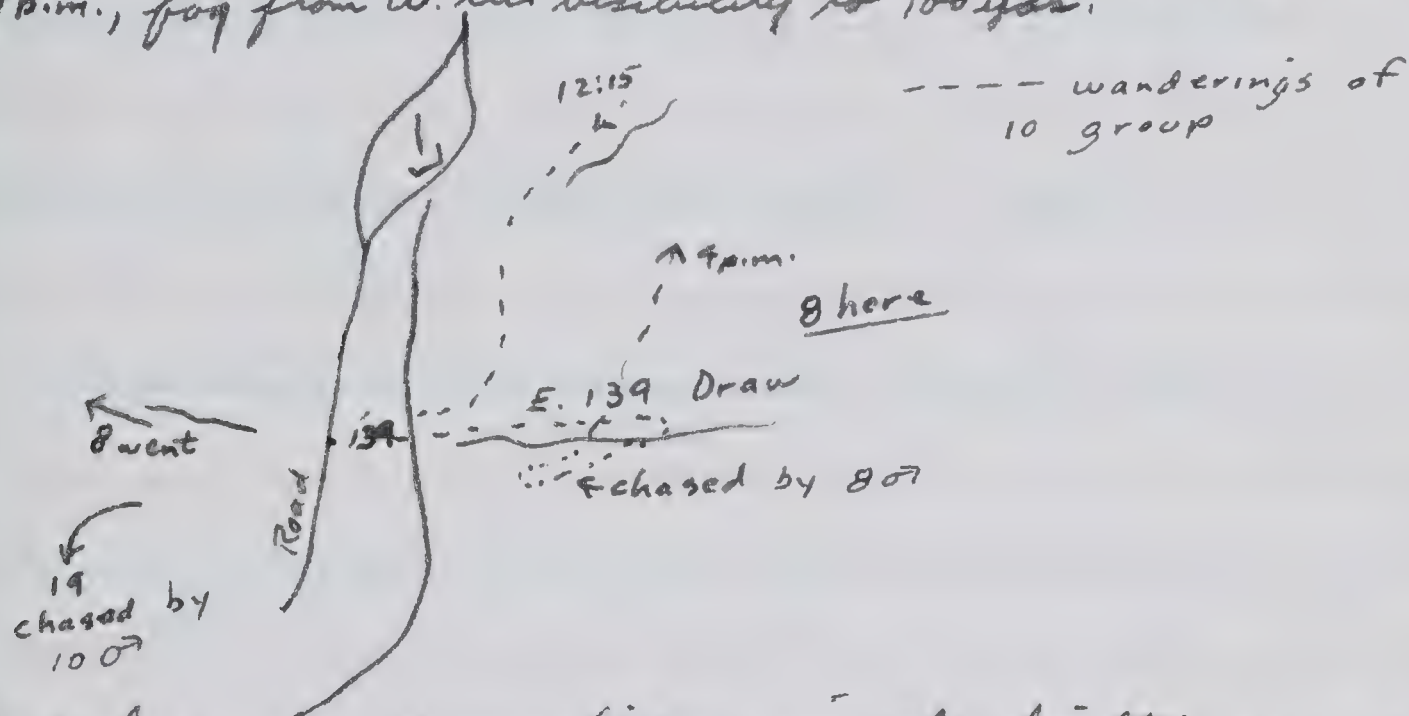 p.m., fog from W. visibility to 100 yds.
12:15
---- wanderings of
10 group
4 p.m.
8 here
E. 139 Draw
139
8 went
chased by 8♂
Road
19
chased by
10♂